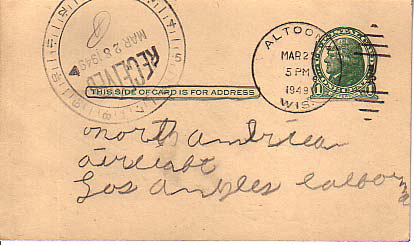 ALTOONA
MAR 2
5 PM
1949
WIS.
MAR 28 1949
RECEIVED
THIS SIDE OF CARD IS FOR ADDRESS
1 1
north american
aircraft
Los Angles